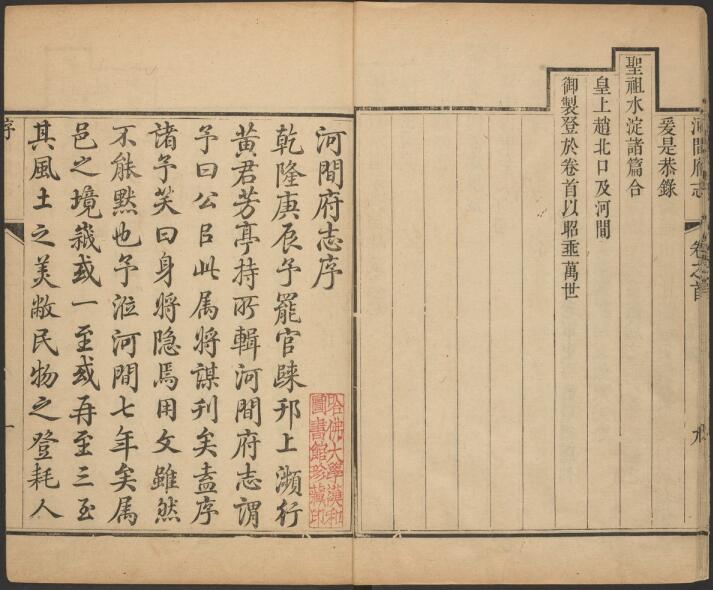 河間府志
卷之首
九
爰是恭錄
聖祖水淀諸篇合
皇上趙北口及河間
御製登於卷首以昭垂萬世
河間府志序
乾隆庚辰予罷官歸邗上瀕行
黃君芳亭持所輯河間府志謂
予曰公㠯此属将謀刋矣盍序
諸予笑曰身将隐焉用文雖然
不能黙也予涖河間七年矣属
邑之境㠯或一至或再至三至
其風土之美敝民物之登耗人
序
一
哈佛大學漢和
圖書館珍藏印